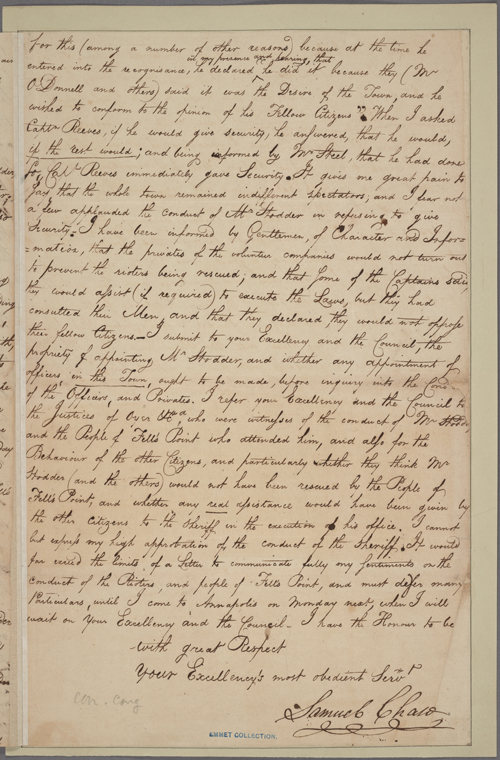 for this (among a number of other reasons) because at the time he
in my presence and hearing, that
entered into the recognisance, he declared he did it because they (Mr
O'Donnell and others) said it was the Desire of the Town, and he
wished to conform to the opinion of his Fellow Citizens". When I asked
Captn Reeves, if he would give security, he answered, that he would,
if the rest would; and being informed by Mr Steel, that he had done
so, Captn Reeves immediately gave Security. It gives me great pain to
say, that the whole town remained indifferent spectators; and I fear not
a few applauded the conduct of Mr Stodder in refusing to give
Security. I have been informed by Gentlemen, of Character and Infor=
=mation, that the privates of the volunteer companies would not turn out
to prevent the rioters being rescued; and that some of the Captains said,
they would assist (if required) to execute the Laws, but they had
consulted their Men, and that they declared, they would not oppose
their fellow Citizens. I submit to your Excellency and the Council, the
propriety of appointing Mr Stodder, and whether any appointment of
officers in this Town, ought to be made, before inquiry into the
of the Officers and Privates. I refer your Excellency and the Council to
the Justices of Oyer &ca who were witnesses of the conduct of Mr Stodder
and the People of Fell's Point who attended him, and also for the
Behaviour of the other Citizens, and particularly whether they think Mr
Stodder (and the others) would not have been rescued by the People of
Fell's Point, and whether any real assistance would have been given by
the other Citizens to the Sheriff, in the execution of his office. I cannot
but express my high approbation of the conduct of the Sheriff. It would
far exceed the limits of a Letter to communicate fully my sentiments on the
conduct of the Rioters, and people of Fells Point, and must defer many
Particulars, until I come to Annapolis on Monday next, when I will
wait on Your Excellency and the Council - I have the Honour to be
with great Respect
Your Excellency's most obedient Servt
Samuel Chase
EMMET COLLECTION.